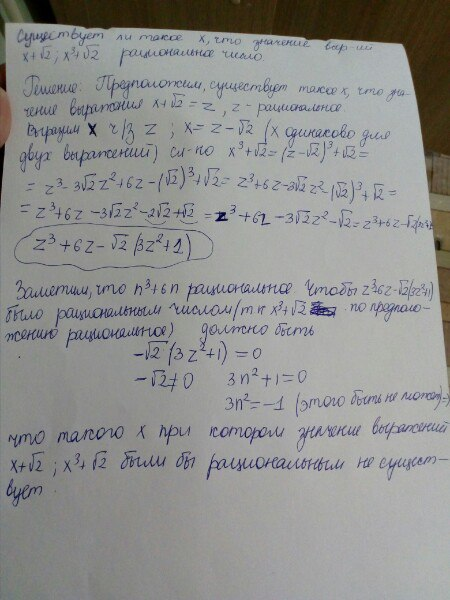 Существует ли такое x, что значение выр-ий
x+√2 ; x³+√2 рациональное число
Решение: Предположим, существует такое x, что зна-
чение выражения x+√2 = z, z - рациональное.
Выразим x ч/з z ; x = z-√2 (x одинаково для
двух выражений) сл-но x³+√2 = (z-√2)³+√2 =
= z³-3√2z²+6z-(√2)³+√2 = z³+6z-3√2z²-(√2)³+√2 =
= z³+6z-3√2z²-2√2+√2 = z³+6z-3√2z²-√2 = z³+6z-√2(3z²+1)
z³+6z-√2(3z²+1)
Заметим, что n³+6n рациональное. Чтобы z³+6z-√2(3z²+1)
было рациональным числом (т к x³+√2 по предполо-
жению рациональное) должно быть
-√2(3z²+1) = 0
-√2≠0 3n²+1=0
3n²=-1 (этого быть не может) =>
что такого x при котором значение выражений
x+√2 ; x³+√2 были бы рациональным не сущест-
вует.